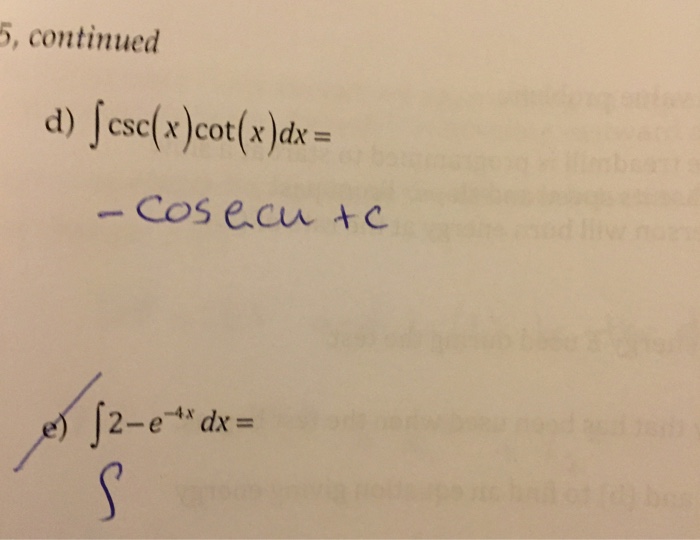 5, continued
d) ∫csc(x)cot(x)dx=
- cosecu +c
e) ∫2-e^-4x dx=
∫